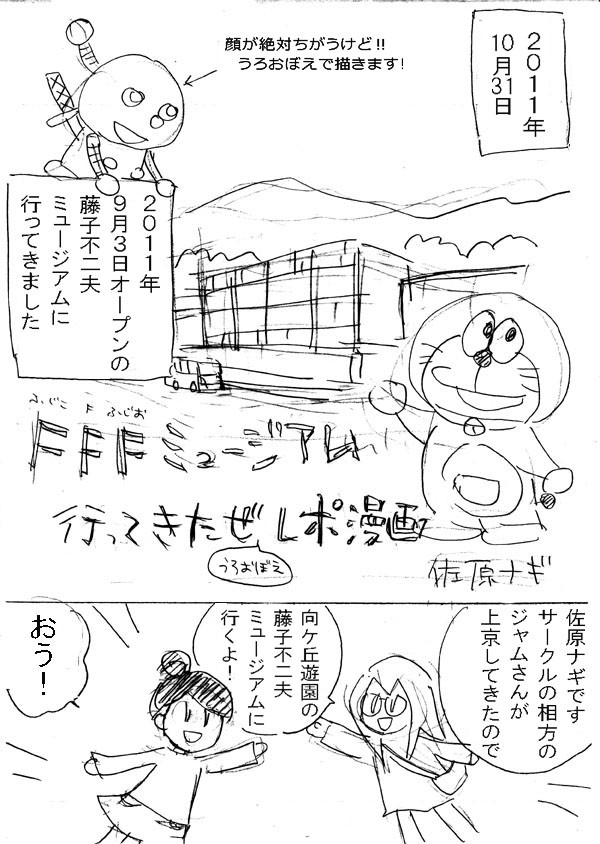 2011年
10月31日
顔が絶対ちがうけど!!
うろおぼえで描きます!
2011年
9月3日オープンの
藤子不二夫
ミュージアムに
行ってきました
ふじこ F ふじお
FFFミュージアム
行ってきたぜレポ漫画
うろおぼえ
佐原ナギ
佐原ナギです
サークルの相方の
ジャムさんが
上京してきたので
向ケ丘遊園の
藤子不二夫
ミュージアムに
行くよ!
おう!